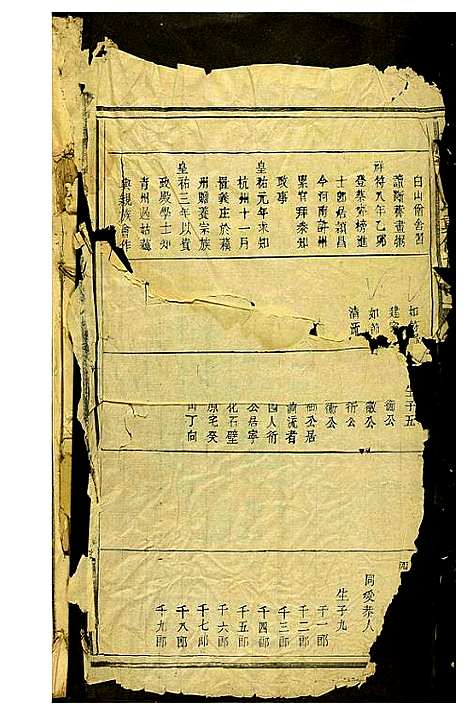 白山僧舍習
讀斷虀畫粥
祥符八年乙卯
登蔡齊榜進
士郎居潁昌
今河南許州
累官拜參知
政事
皇祐元年求知
杭州十一月
置義庄於蘓
州贍養宗族
皇祐三年以資
政殿學士知
青州過姑蘓
與親族會作
如
建
如
清流
生子五
衙公
公
衍公
衙公
公居
流者
四人衍
公居寧
化石壁
原宅癸
山丁向
同愛恭人
生子九
千一郎
千二郎
千三郎
千四郎
千五郎
千六郎
千七郎
千八郎
千九郎